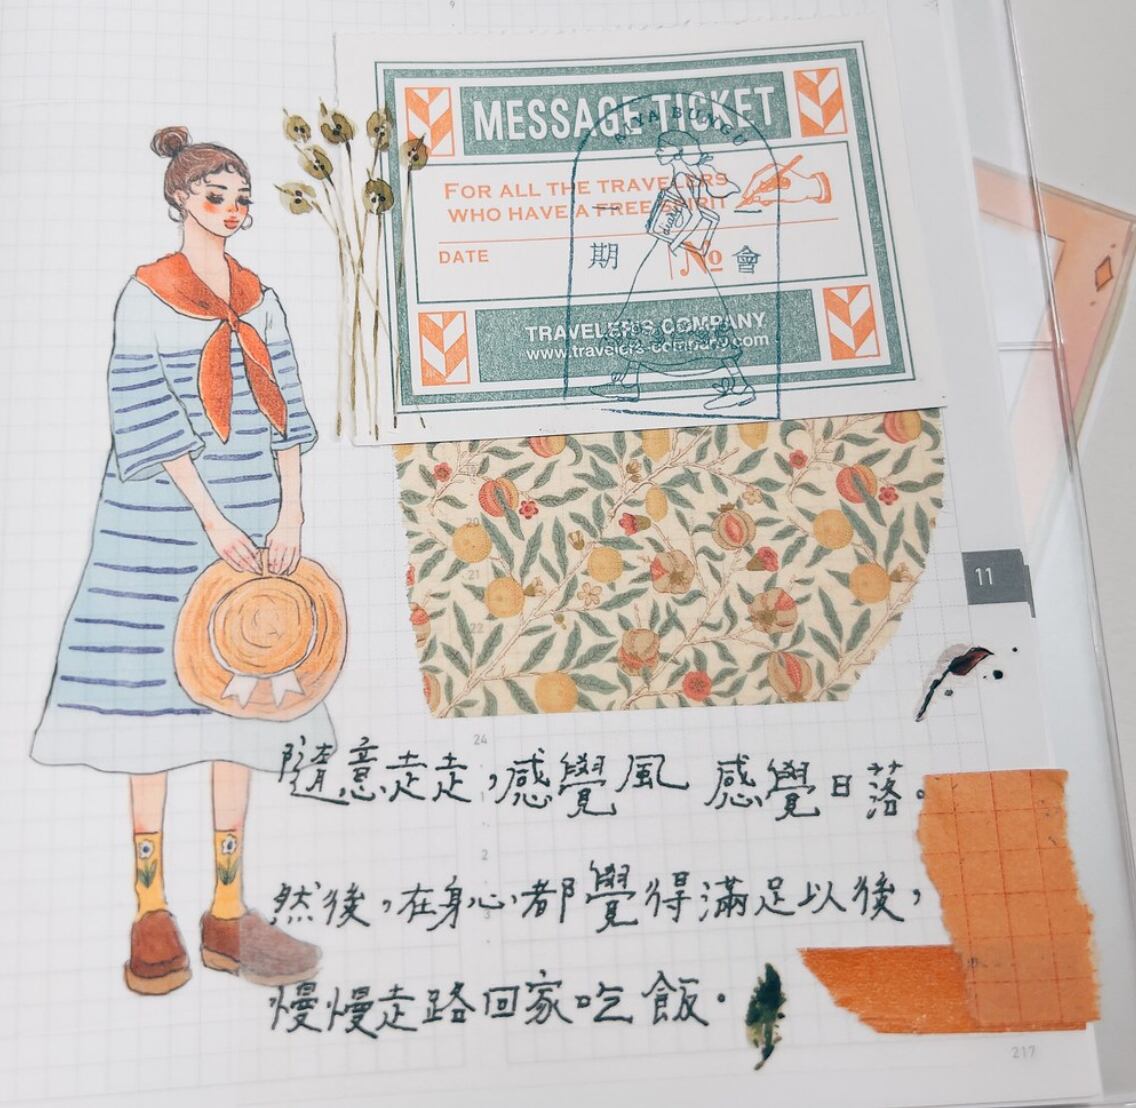 MESSAGE TICKET
AIYA BUNGU
FOR ALL THE TRAVELERS
WHO HAVE A FREE SPIRIT
diary
DATE
期
No
會
TRAVELER'S COMPANY
www.travelers-company.com
20
21
22
11
24
隨意走走，感覺風 感覺日落。
2
然後，在身心都覺得滿足以後，
3
慢慢走路回家吃飯。
217